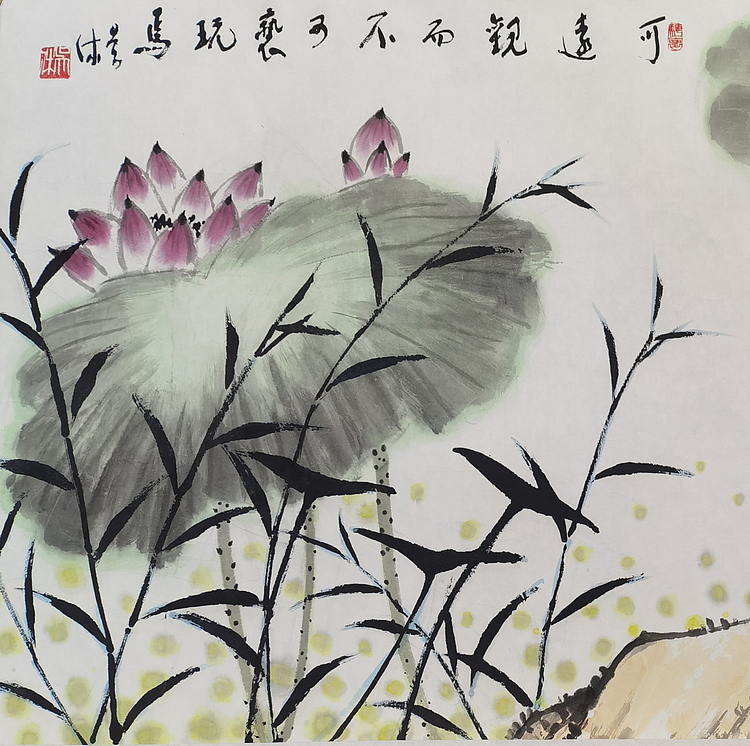 可遠觀而不可褻玩焉